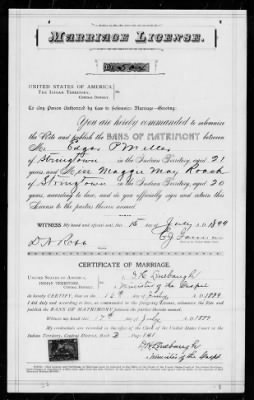 MARRIAGE LICENSE.
UNITED STATES OF AMERICA,
THE INDIAN TERRITORY,
CENTRAL DISTRICT.
To Any Person Authorized by Law to Solemnize Marriage—Greeting:
You are hereby commanded to solemnize
the Rite and publish the BANS OF MATRIMONY between
Mr. Edgar P Miller
of Stringtown in the Indian Territory, aged 21
years, and Miss Maggie May Roach
of Stringtown in the Indian Territory, aged 20
years, according to law, and do you officially sign and return this
License to the parties therein named.
WITNESS my hand and official seal, this 15 day of July A. D. 1899
D. N. Robb
CERTIFICATE OF MARRIAGE.
UNITED STATES OF AMERICA,
INDIAN TERRITORY,
CENTRAL DISTRICT.
a Minister of the Gospel
do hereby CERTIFY, that on the 16th day of July A. D. 1899,
I did duly and according to law, as commanded in the foregoing License, solemnize the Rite and publish
the BANS OF MATRIMONY between the parties therein named.
Witness my hand this 17th day of July A. D. 1899
My credentials are recorded in the office of the Clerk of the United States Court in the
Indian Territory, Central District, Book B Page 161
Minister of the Gospel